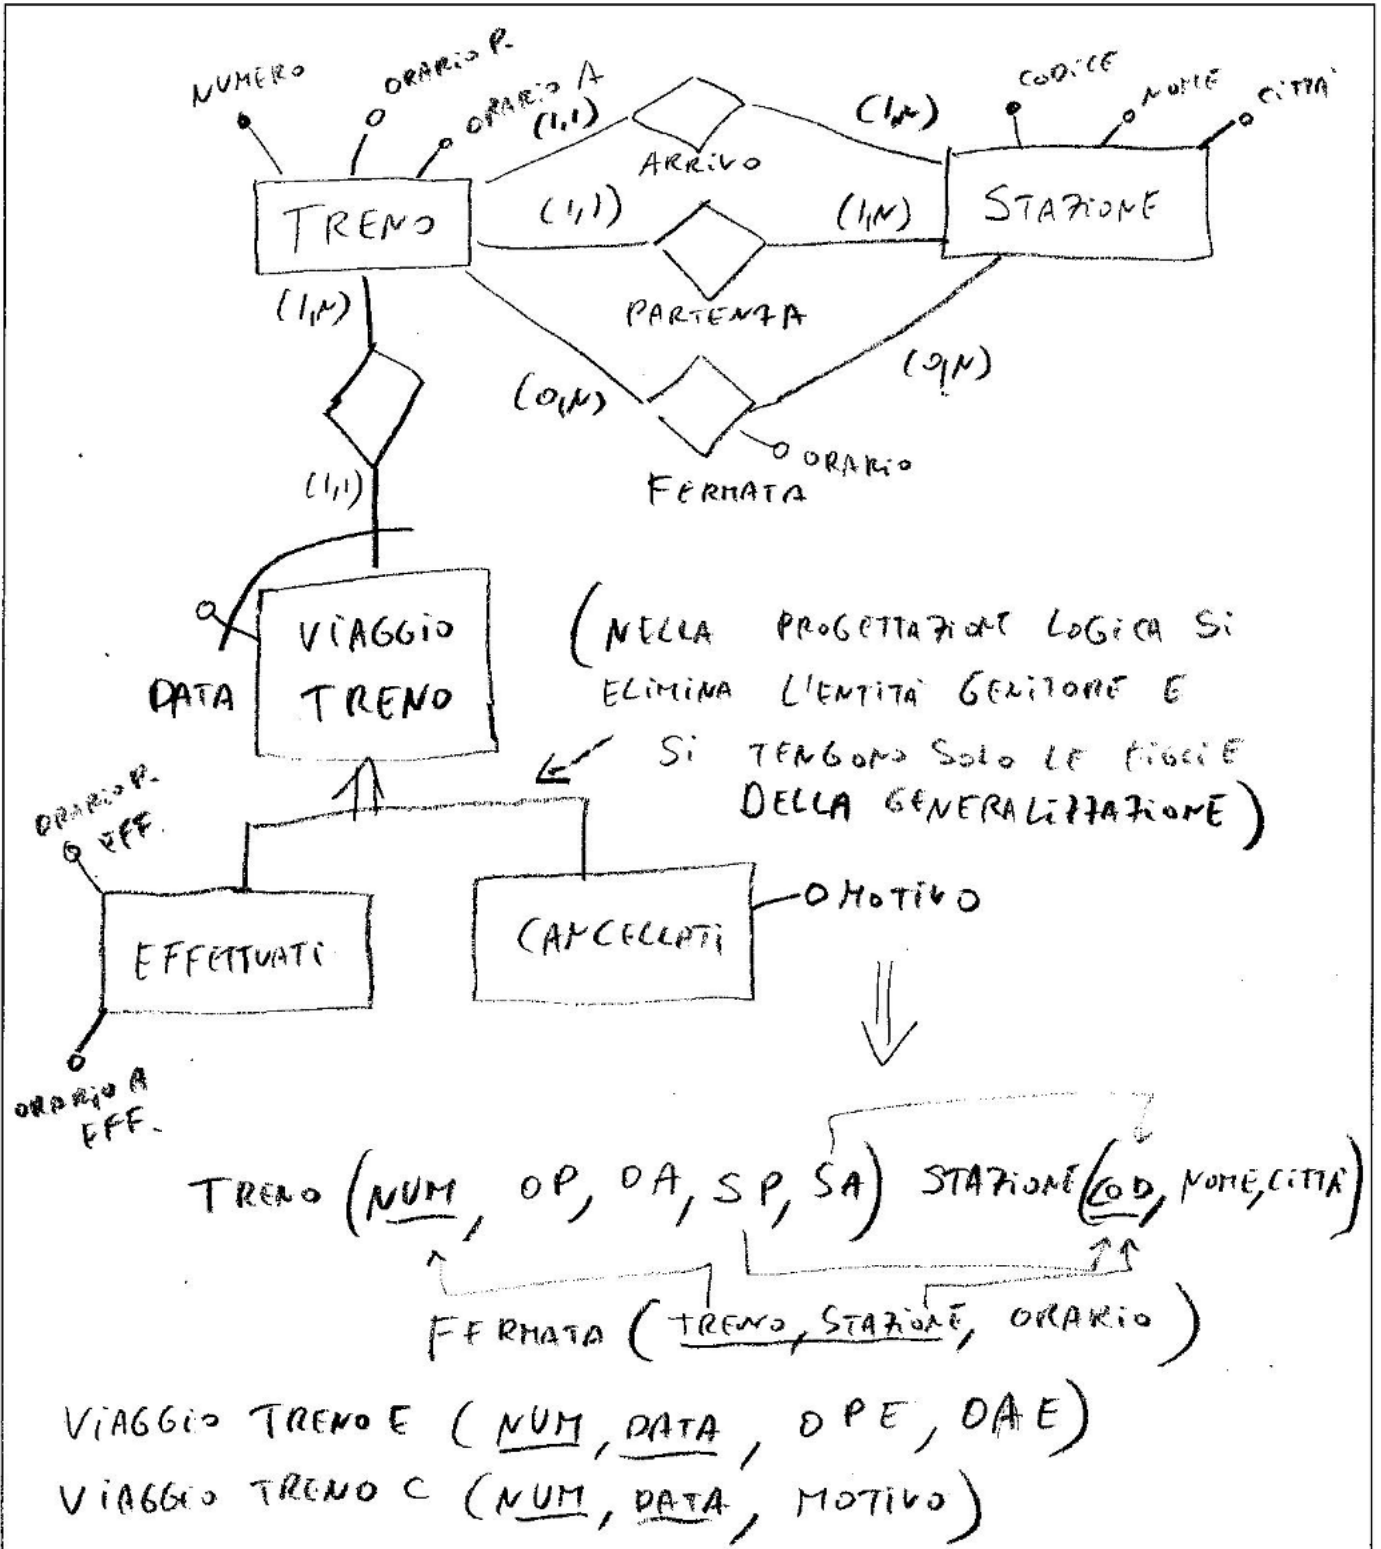 NUMERO
ORARIO P.
ORARIO A
CODICE
NOME
CITTÀ
(1,1)
(1,N)
ARRIVO
TRENO
(1,1)
(1,N)
STAZIONE
PARTENZA
(1,N)
(0,N)
(0,N)
ORARIO
FERMATA
(1,1)
DATA
VIAGGIO
TRENO
(NELLA PROGETTAZIONE LOGICA SI
ELIMINA L'ENTITÀ GENITORE E
SI TENGONO SOLO LE FIGLIE
DELLA GENERALIZZAZIONE)
ORARIO P.
EFF.
EFFETTUATI
CANCELLATI
MOTIVO
ORARIO A
EFF.
TRENO (NUM, OP, OA, SP, SA) STAZIONE (COD, NOME, CITTÀ)
FERMATA (TRENO, STAZIONE, ORARIO)
VIAGGIO TRENO E (NUM, DATA, OPE, OAE)
VIAGGIO TRENO C (NUM, DATA, MOTIVO)